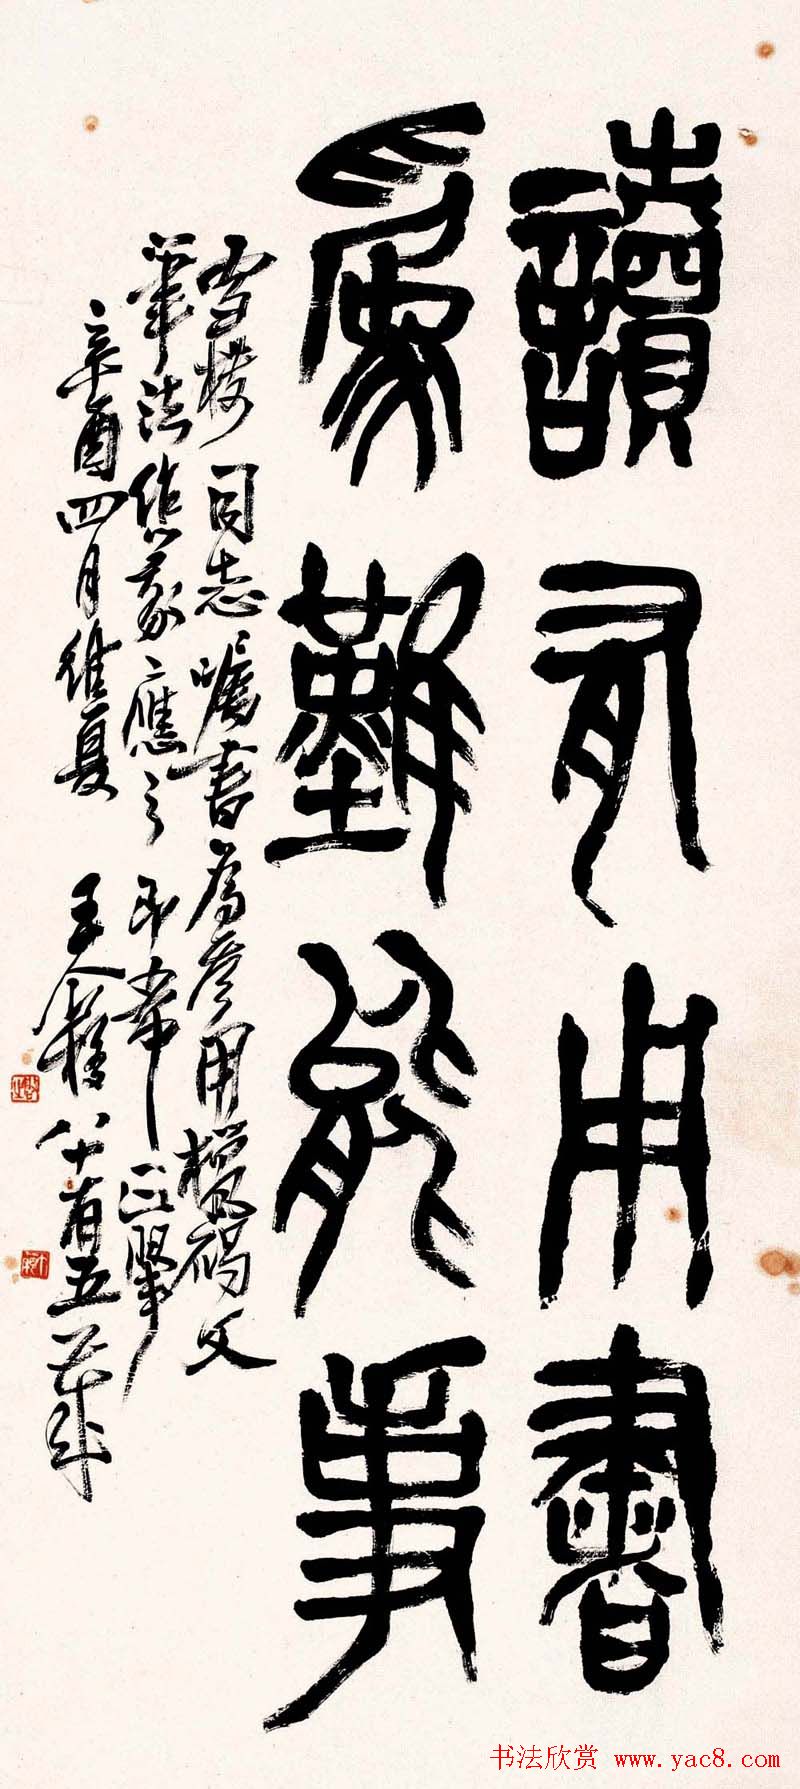 讀有用書
為難能事
雪樓同志囑書為參用獵碣文
筆法作篆以應之即希正
辛酉四月維夏 王个簃八十有五歲
书法欣赏 www.yac8.com